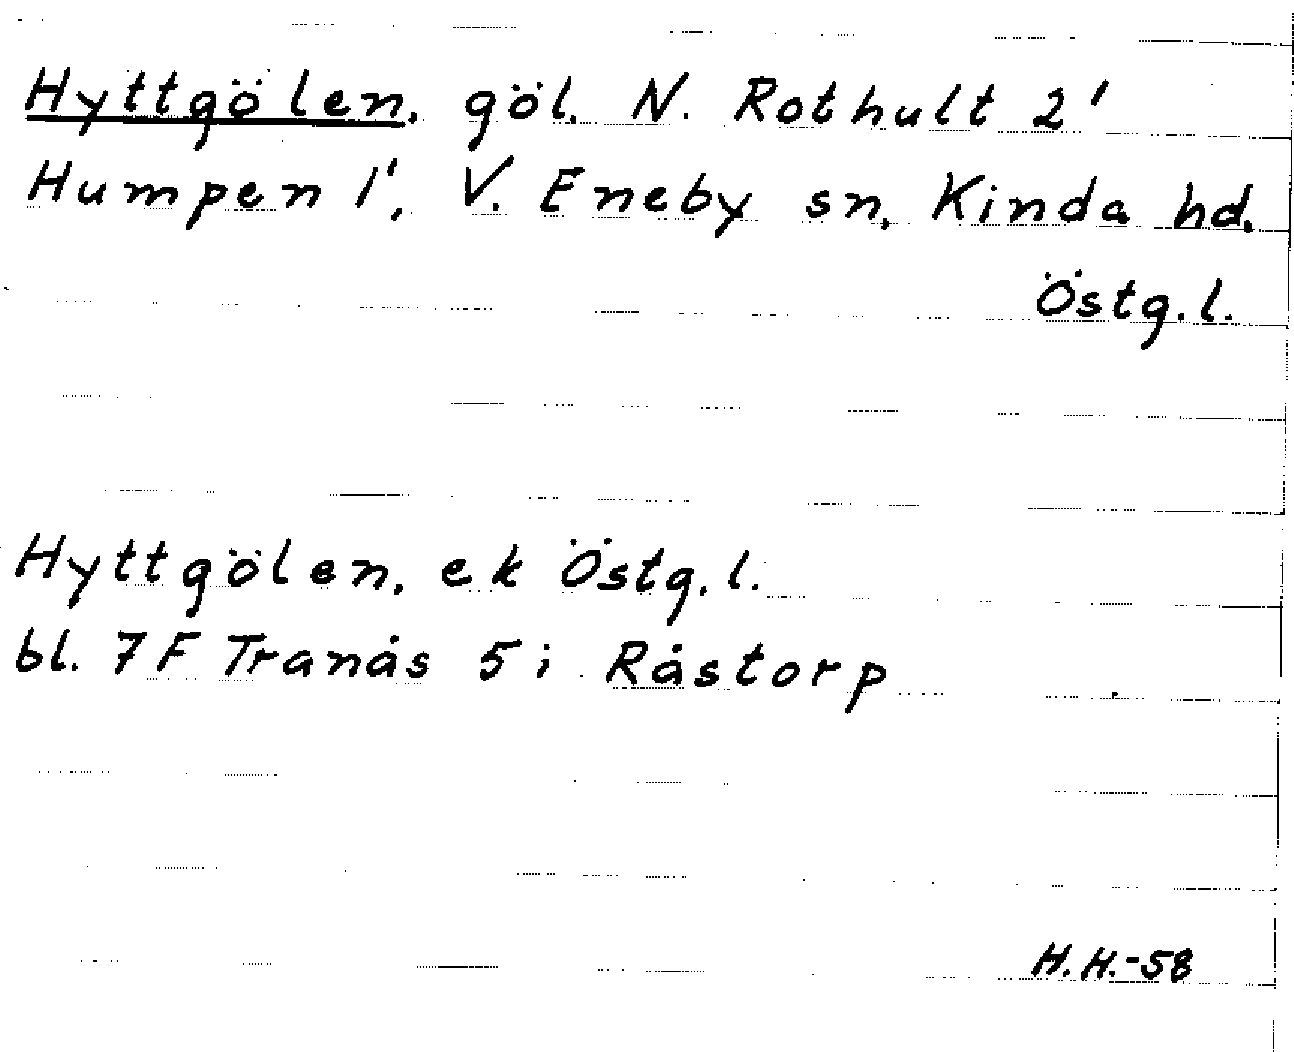 Hyttgölen, göl, N. Rothult 2'
Humpen 1', V. Eneby sn, Kinda hd.
Östg.l.
Hyttgölen, ek Östg.l.
bl. 7F Tranås 5 i Råstorp
H.H.-58